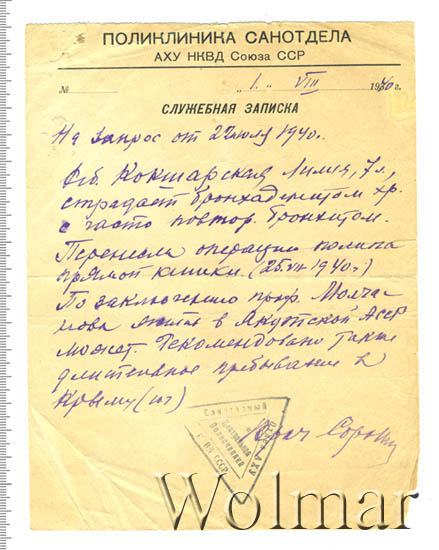 ПОЛИКЛИНИКА САНОТДЕЛА
АХУ НКВД Союза ССР
№ „ 1. „ VIII 1940г.
СЛУЖЕБНАЯ ЗАПИСКА
На запрос от 22 июля 1940г.
Реб. Кокшарская Лилия, 7 л.,
страдает бронхаденитом хр.
с часто повтор. бронхитом.
Перенесла операцию полипа
прямой кишки. (25.VII 1940г.)
По заключению проф. Молча-
нова жить в Якутской АССР
может. Рекомендовано также
длительное пребывание в
Крыму (юг)
Врач
Санитарный
Центральная
Поликлиника
АХУ
НКВД СССР
Wolmar